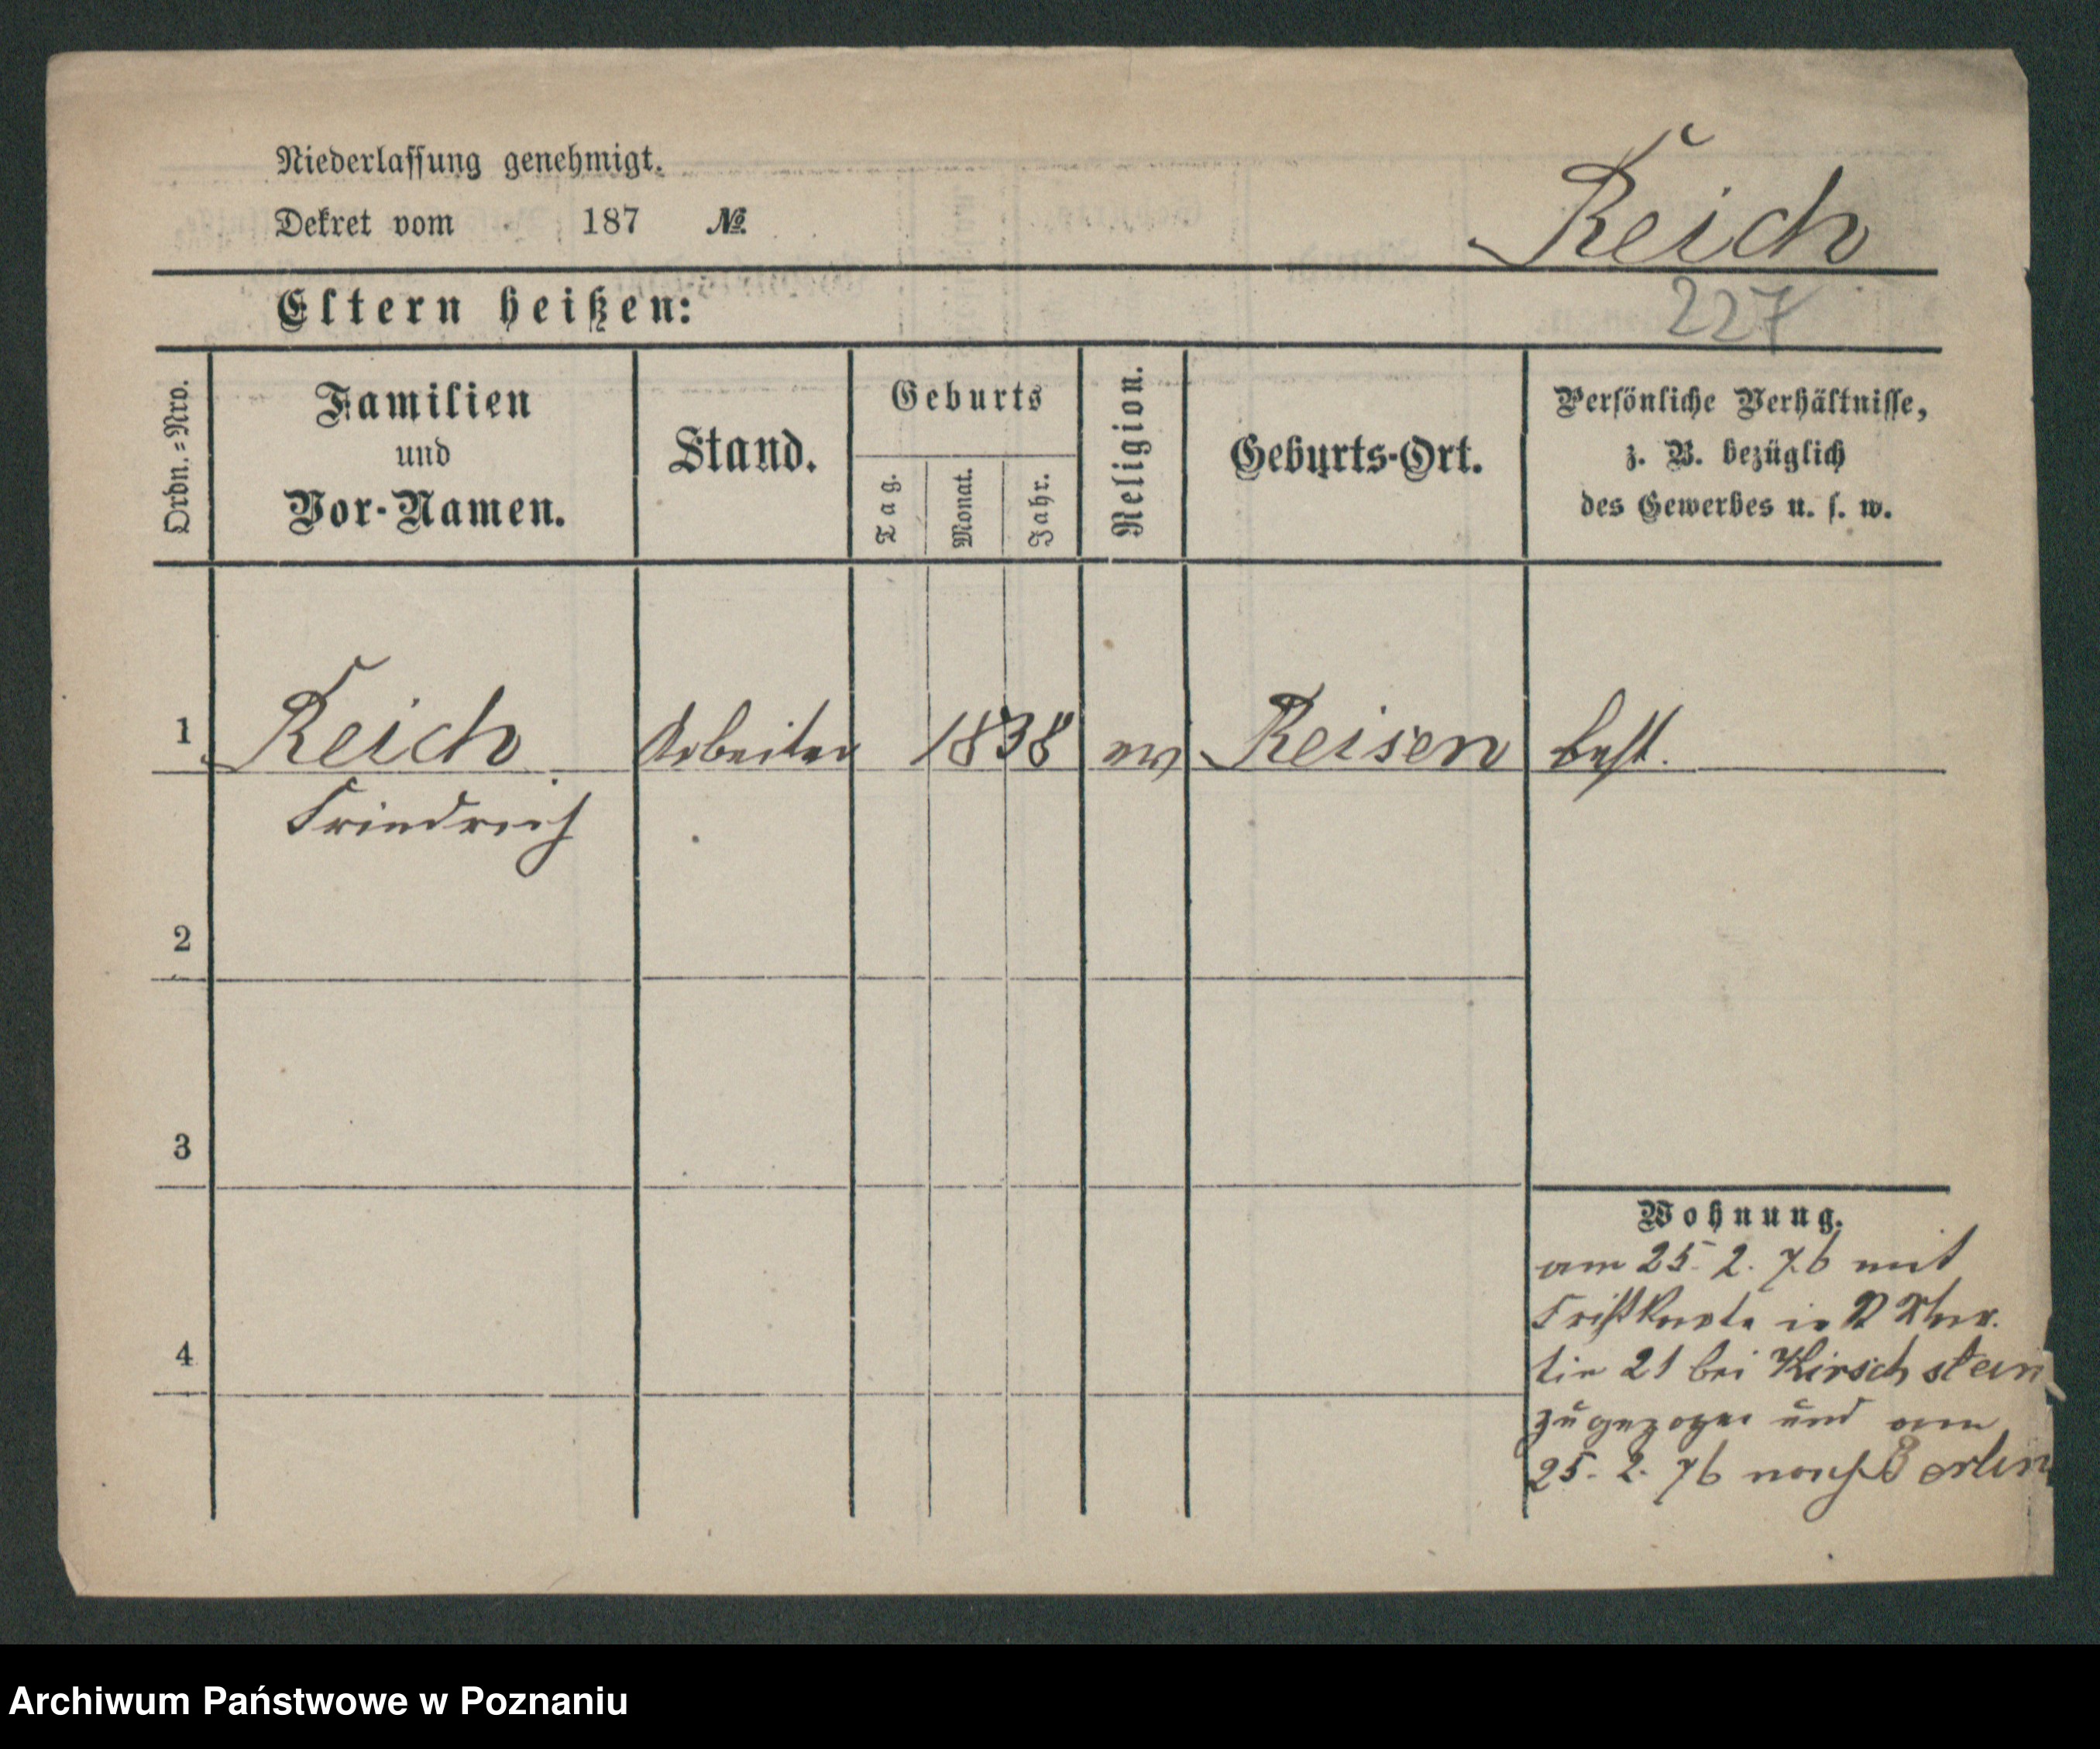 Niederlassung genehmigt.
Dekret vom 187 №
Reich
227
Eltern heißen:
Ordn.=Nro.
Familien
und
Vor-Namen.
Stand.
Geburts
Tag.
Monat.
Jahr.
Religion.
Geburts-Ort.
Persönliche Verhältnisse,
z. B. bezüglich
des Gewerbes u. s. w.
1 Reich Arbeiter 1838 ev Reisen best.
Friedrich
2
3
4
Wohnung.
am 25. 2. 76 mit
Fristkarte in
tin 21 bei Kirschstein
zugezogen und am
25. 2. 76 nach Berlin
Archiwum Państwowe w Poznaniu